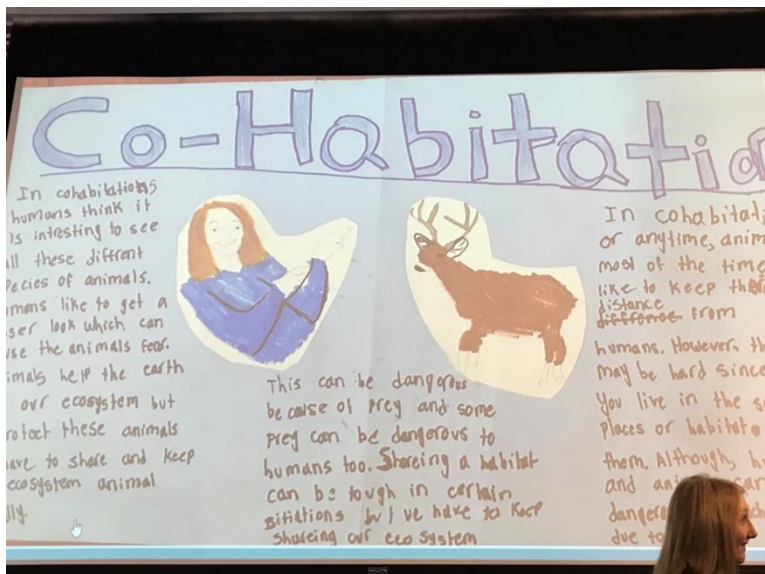 Co-Habitatio
In cohabitations
humans think it
is intresting to see
all these diffrent
pecies of animals.
mans like to get a
ser look which can
use the animals fear.
imals help the earth
our ecosystem but
rotect these animals
ave to share and keep
ecosystem animal
lly.
This can be dangerous
because of prey and some
prey can be dangerous to
humans too. Shareing a habitat
can be tough in certain
sitiations but we have to keep
shareing our eco system
In cohabitati
or anytime, anim
most of the time
like to keep their
distance
difference from
humans. However, th
may be hard since
You live in the s
places or habitat o
them. Although, hu
and ani can
dangero
due to